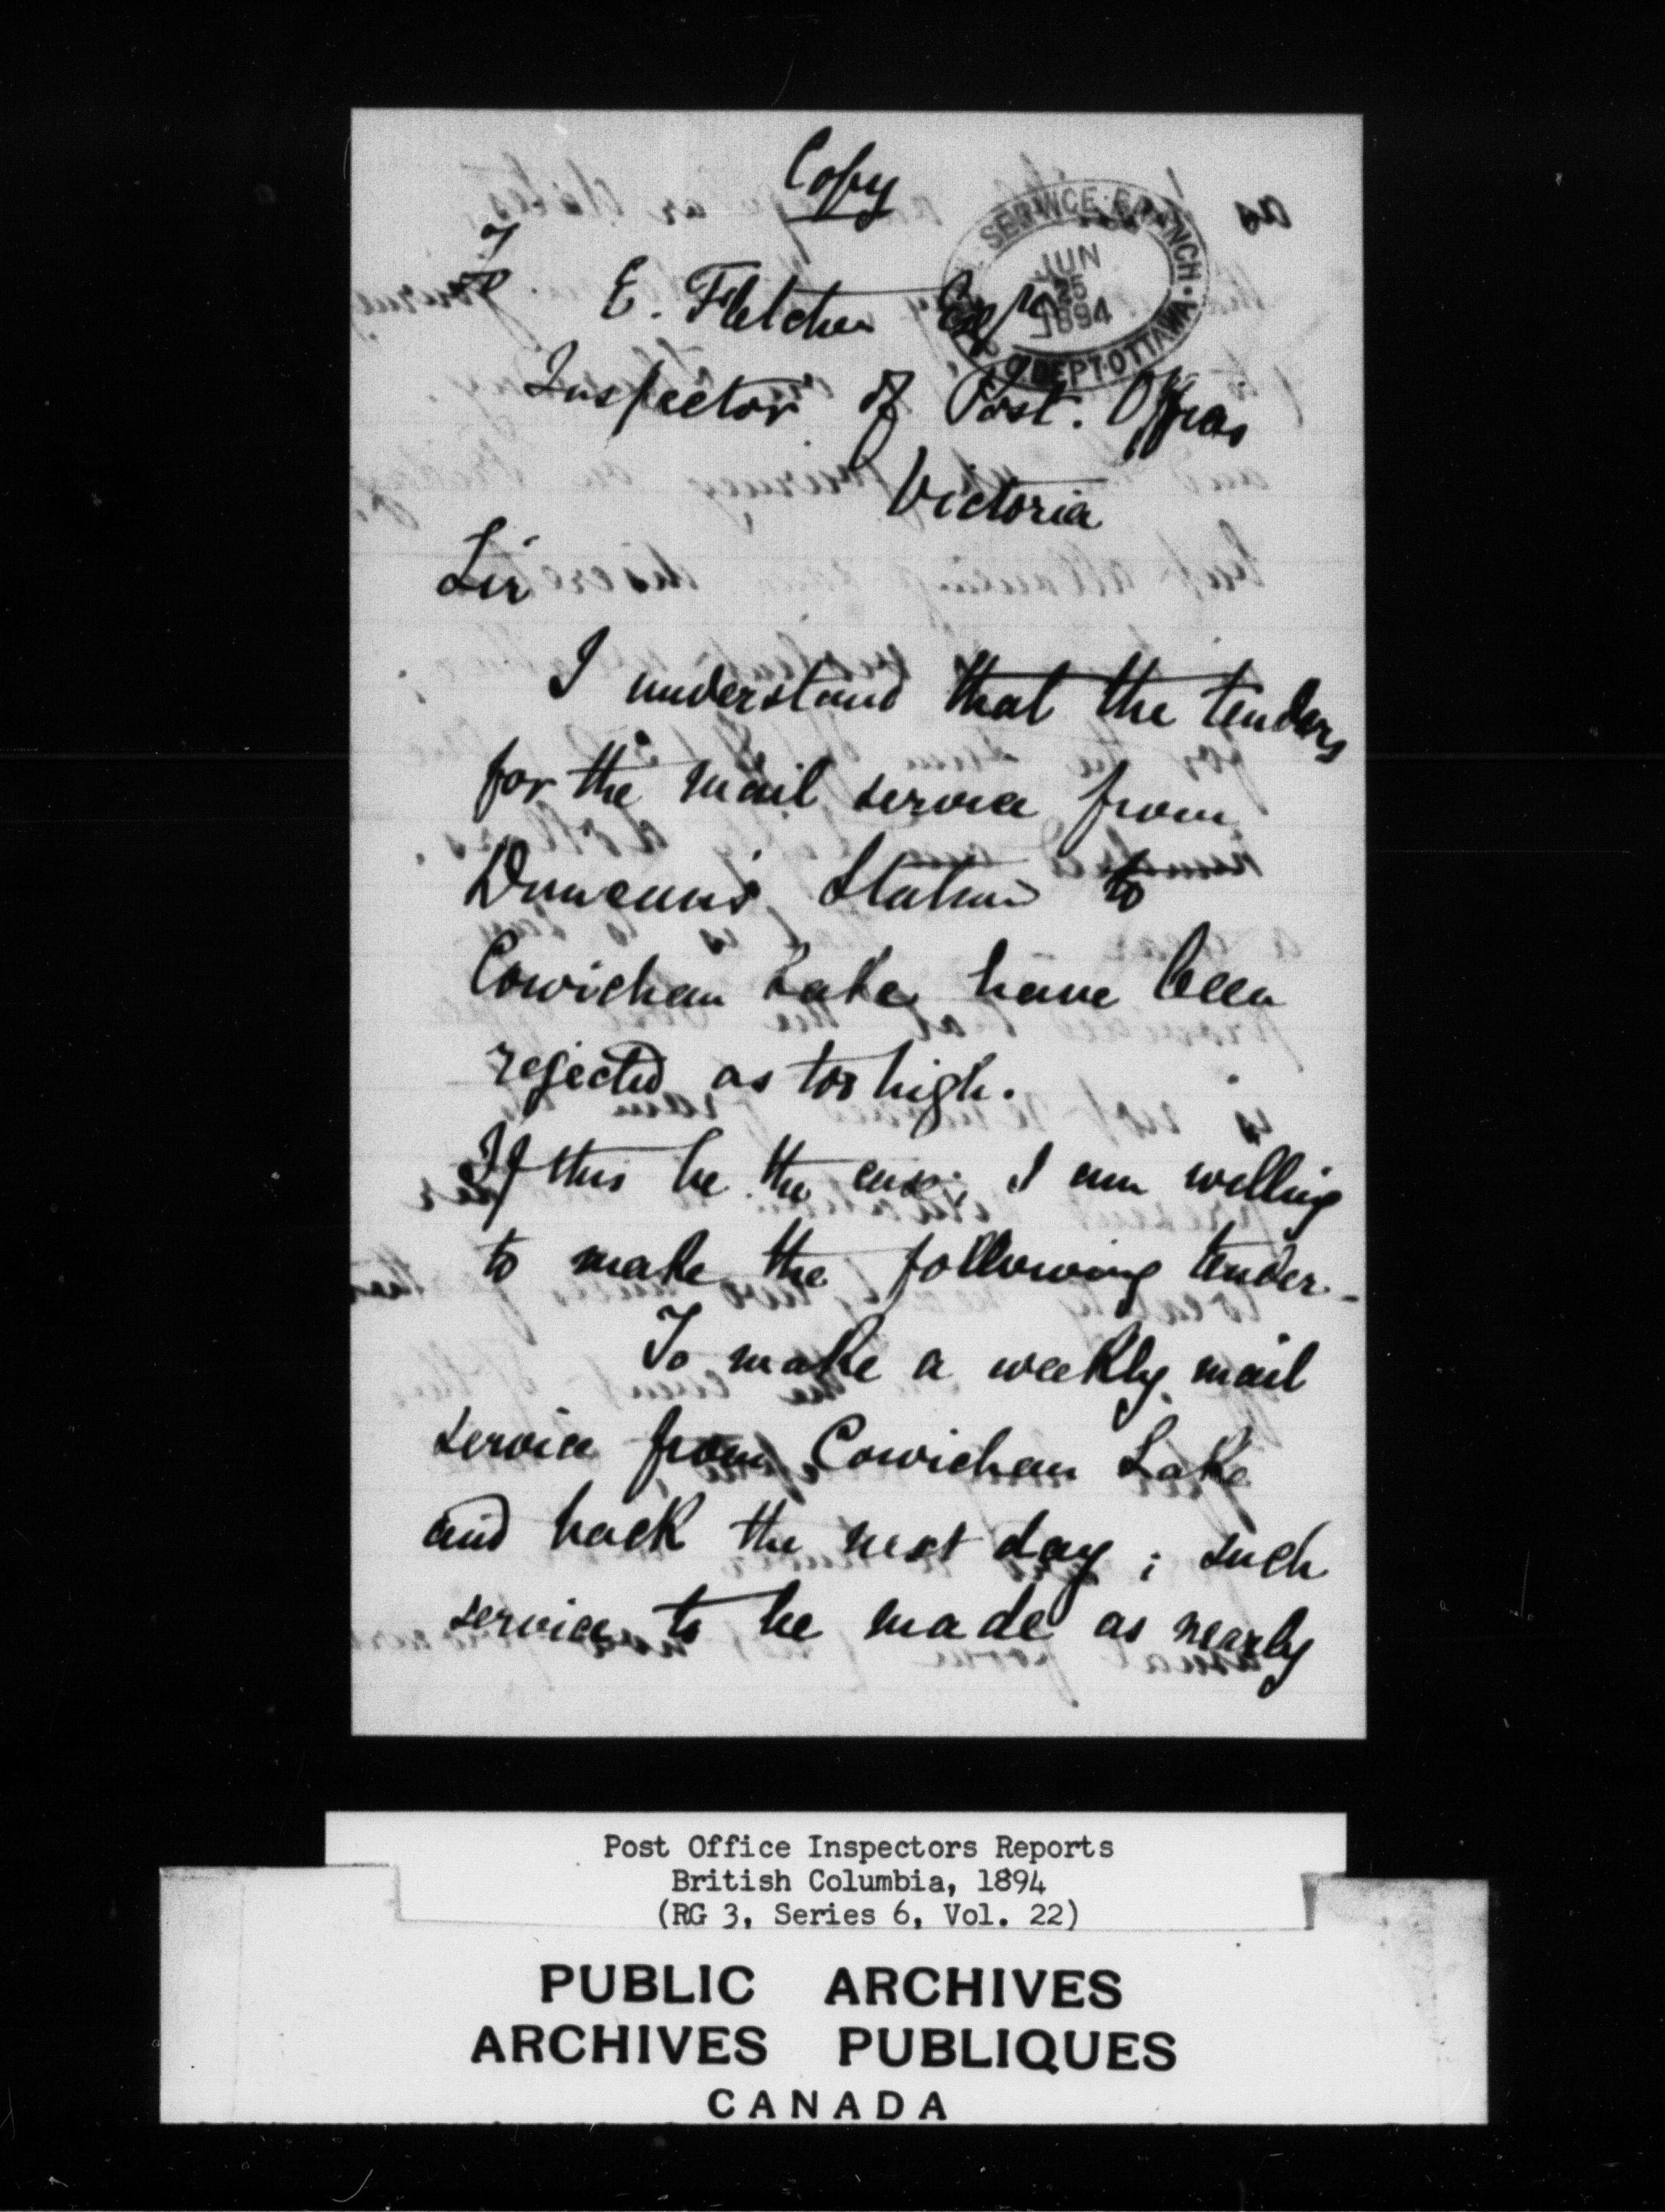 Copy
To
E. Fletcher Esqre
Inspector of Post. Offices
Victoria
SERVICE BRANCH
JUN
25
1894
P.O. DEPT. OTTAWA
Sir
I understand that the tenders
for the mail service from
Duncan's Station to
Cowichan Lake have been
rejected as too high.
If this be the case, I am willing
to make the following tender -
To make a weekly mail
service from Cowichan Lake
and back the next day ; such
service to be made as nearly
Post Office Inspectors Reports
British Columbia, 1894
(RG 3, Series 6, Vol. 22)
PUBLIC ARCHIVES
ARCHIVES PUBLIQUES
CANADA